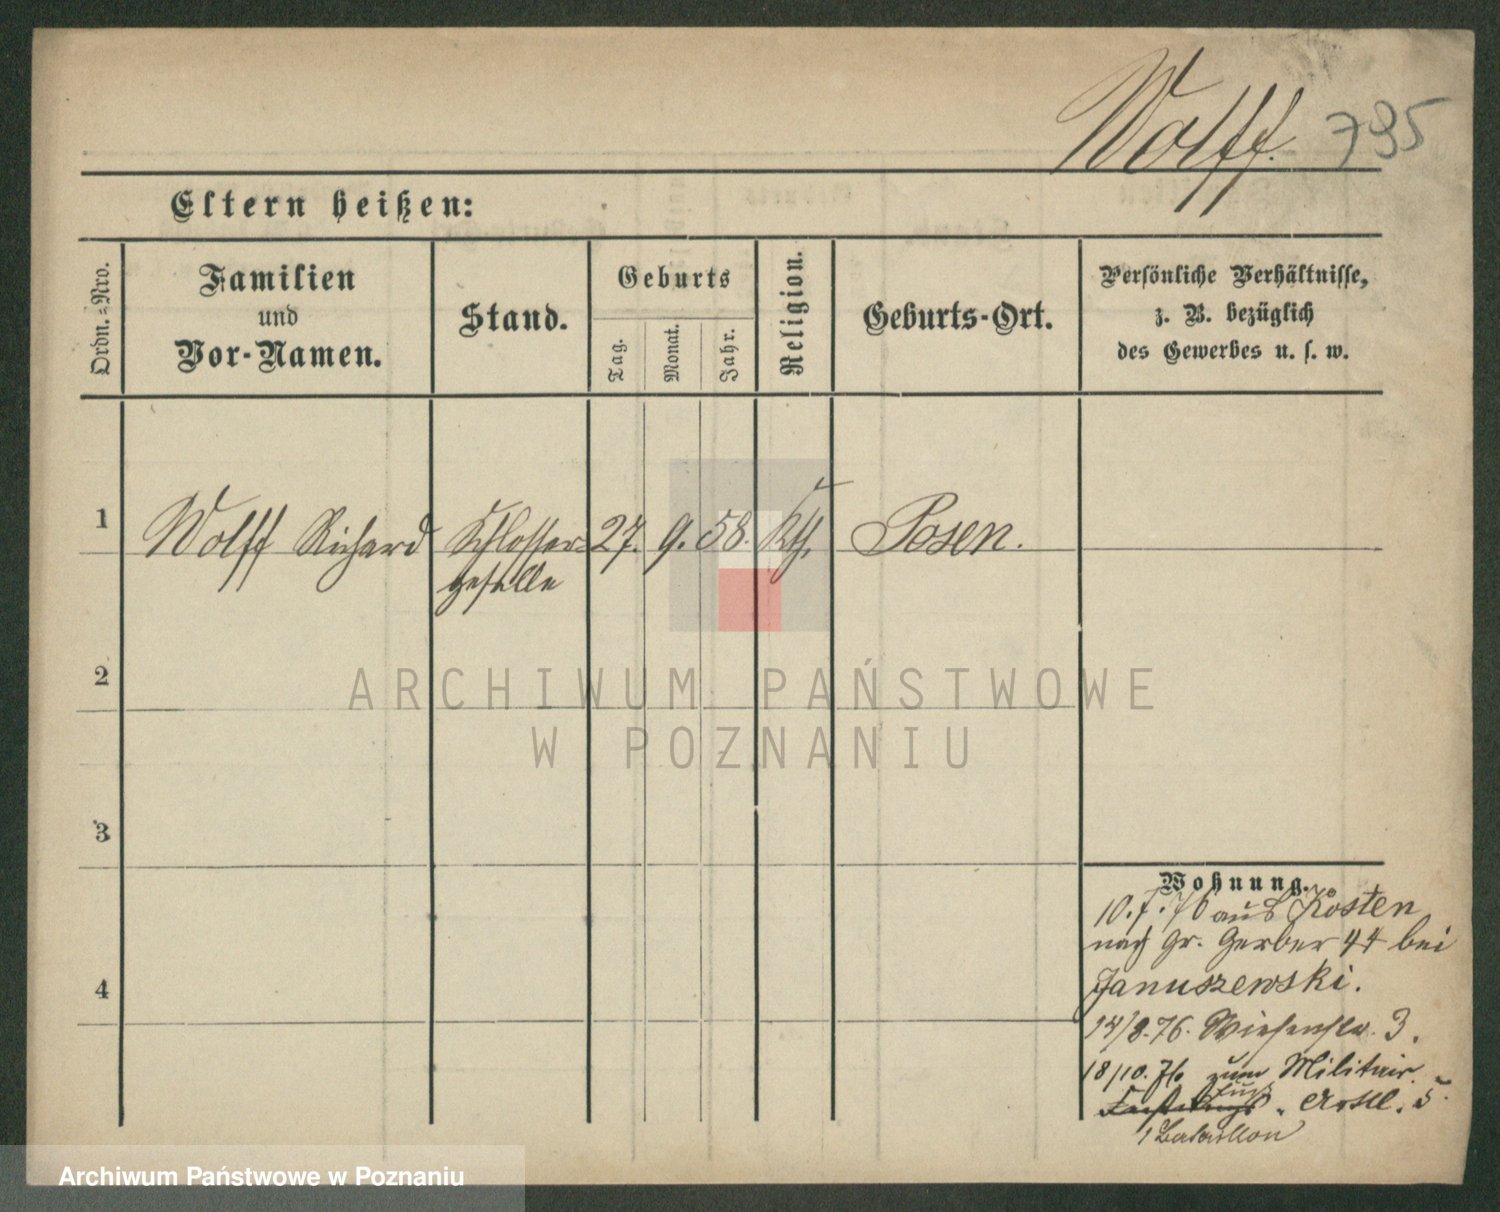 Wolff. 795
Eltern heißen:
Ordn.-Nro.
Familien
und
Vor-Namen.
Stand.
Geburts
Tag.
Monat.
Jahr.
Religion.
Geburts-Ort.
Persönliche Verhältnisse,
z. B. bezüglich
des Gewerbes u. s. w.
1 Wolff Richard Schlosser- 27. 9. 58. Kth. Posen.
geselle
2
3
4
Wohnung.
10.7.76 aus Kosten
nach Gr. Gerber 44 bei
Januszewski.
14/8.76. Wiesenstr. 3.
18/10.76 zum Militair.
Fuß
Artill. 5.
1 Bataillon
ARCHIWUM PAŃSTWOWE
W POZNANIU
Archiwum Państwowe w Poznaniu